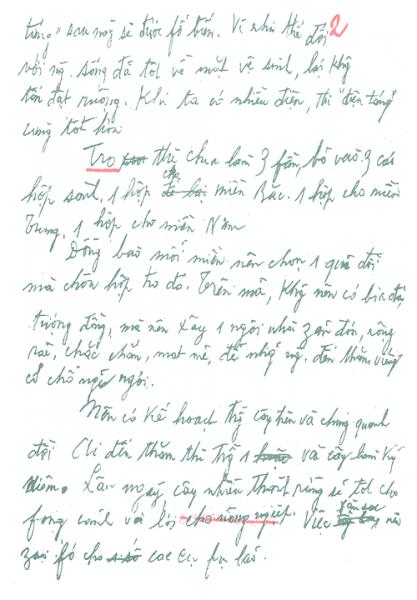 táng" sau này sẽ được fổ biến. Vì như thế đối 2
với ng̀ sống đã tốt về mặt vệ sinh, lại khg
tốn đất ruộng. Khi ta có nhiều điện, thì "điện táng"
càng tốt hơn.
Tro thì chia làm 3 fần, bỏ vào 3 cái
hộp sành, 1 hộp cho miền Bắc. 1 hộp cho miền
Trung, 1 hộp cho miền Nam
Đồng bào mỗi miền nên chọn 1 quả đồi
mà chôn hộp tro đó. Trên mả, khg nên có bia đá,
tượng đồng, mà nên xây 1 ngôi nhà zản đơn, rộng
rãi, chắc chắn, mát mẻ, để nhg ng̀ đến thăm viếng
có chỗ nghỉ ngơi.
Nên có kế hoạch trg cây trên và chung quanh
đồi. Ai đến thăm thì trg 1 và cây làm kỷ
niệm. Lâu ngày, cây nhiều thành rừng sẽ tốt cho
fong cảnh và lợi cho nông nghiệp. Việc săn sóc nên
zao fó cho các cụ fụ lão.